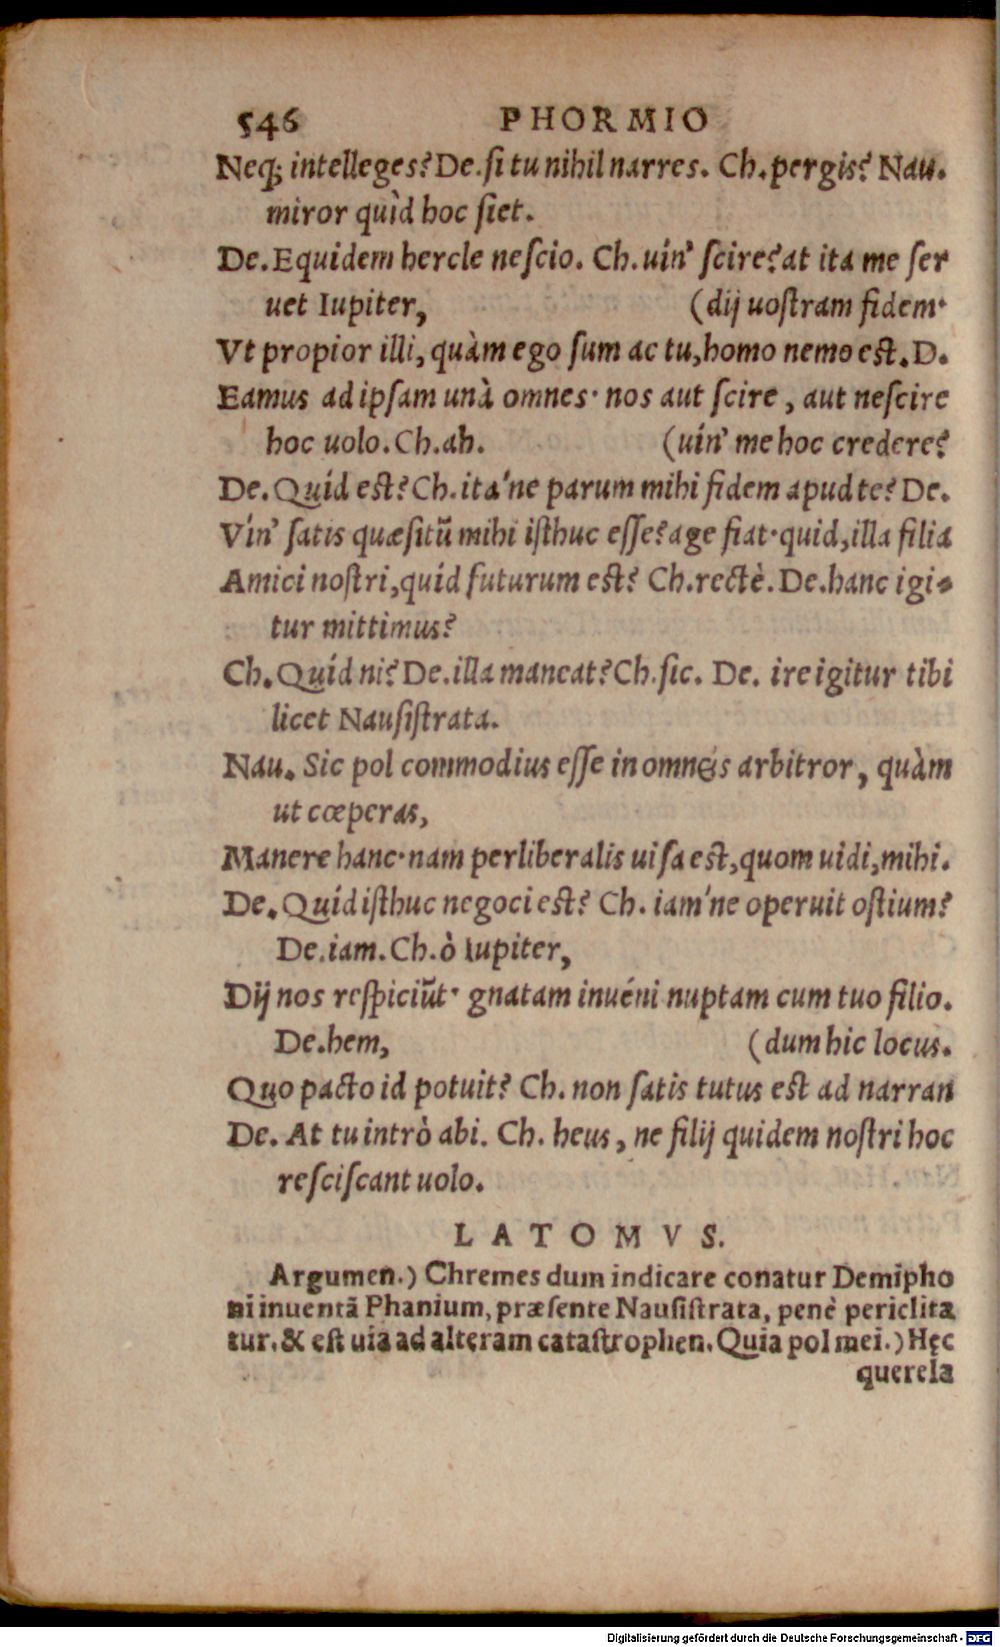 546 PHORMIO
Neq; intelleges? De. si tu nihil narres. Ch. pergis? Nau.
miror quìd hoc siet.
De. Equidem hercle nescio. Ch. uín' scire? at ita me ser
uet Iupiter, (dij uostram fidem·
Vt propior illi, quàm ego sum ac tu, homo nemo est. D.
Eamus ad ipsam unà omnes· nos aut scire, aut nescire
hoc uolo. Ch. ah. (uín' me hoc credere?
De. Quid est? Ch. ita'ne parum mihi fidem apud te? De.
Vín' satis quæsitū mihi isthuc esse? age fiat· quid, illa filia
Amici nostri, quid futurum est? Ch. rectè. De. hanc igi-
tur mittimus?
Ch. Quid ni? De. illa maneat? Ch. sic. De. ire igitur tibi
licet Nausistrata.
Nau. Sic pol commodius esse in omneis arbitror, quàm
ut cœperas,
Manere hanc· nam perliberalis uisa est, quom uidi, mihi.
De. Quid isthuc negoci est? Ch. iam'ne operuit ostium?
De. iam. Ch. ò Iupiter,
Dij nos respiciūt· gnatam inuéni nuptam cum tuo filio.
De. hem, (dum hic locus.
Quo pacto id potuit? Ch. non satis tutus est ad narran
De. At tu intrò abi. Ch. heus, ne filij quidem nostri hoc
resciscant uolo.
LATOMVS.
Argumen.) Chremes dum indicare conatur Demipho
ni inuentā Phanium, præsente Nausistrata, penè periclita
tur. & est uia ad alteram catastrophen. Quia pol mei.) Hęc
querela
Digitalisierung gefördert durch die Deutsche Forschungsgemeinschaft - DFG